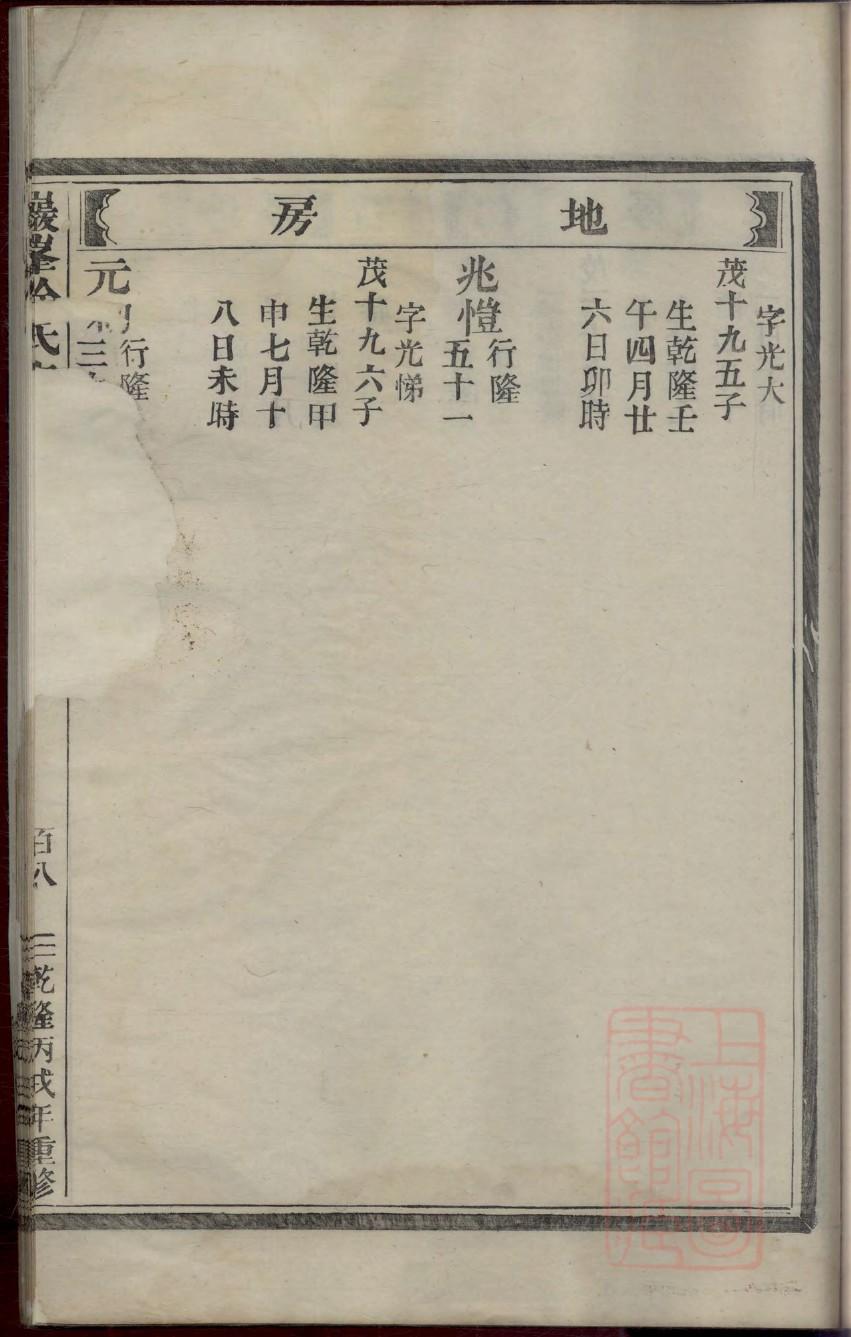 地房
字光大
茂十九五子
生乾隆壬
午四月廿
六日卯時
兆愷行隆
五十一
字光悌
茂十九六子
生乾隆甲
申七月十
八日未時
元
行隆
三
巖
氏
百八
乾隆丙戌年重修
上海圖書館藏